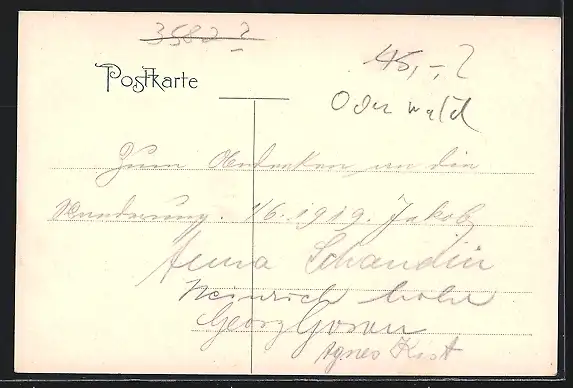 3582 2
45,-2
Postkarte
Odenwald
Zum Andenken an die
Wanderung. 1/6. 1919. Jakob
Anna Schandin
Heinrich
Georg
Agnes Kist